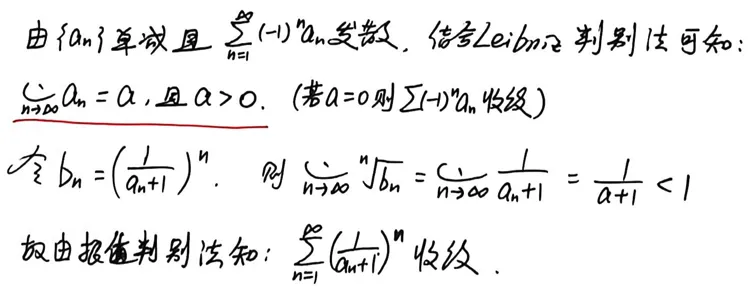 由{an}单减且 ∑_{n=1}^{∞}(-1)^n an 发散, 结合Leibniz 判别法可知:
lim_{n→∞} an = a, 且 a>0. (若a=0则∑(-1)^n an 收敛)
令 bn = (1/(an+1))^n. 则 lim_{n→∞} ⁿ√bn = lim_{n→∞} 1/(an+1) = 1/(a+1) < 1
故由根值判别法知: ∑_{n=1}^{∞} (1/(an+1))^n 收敛.